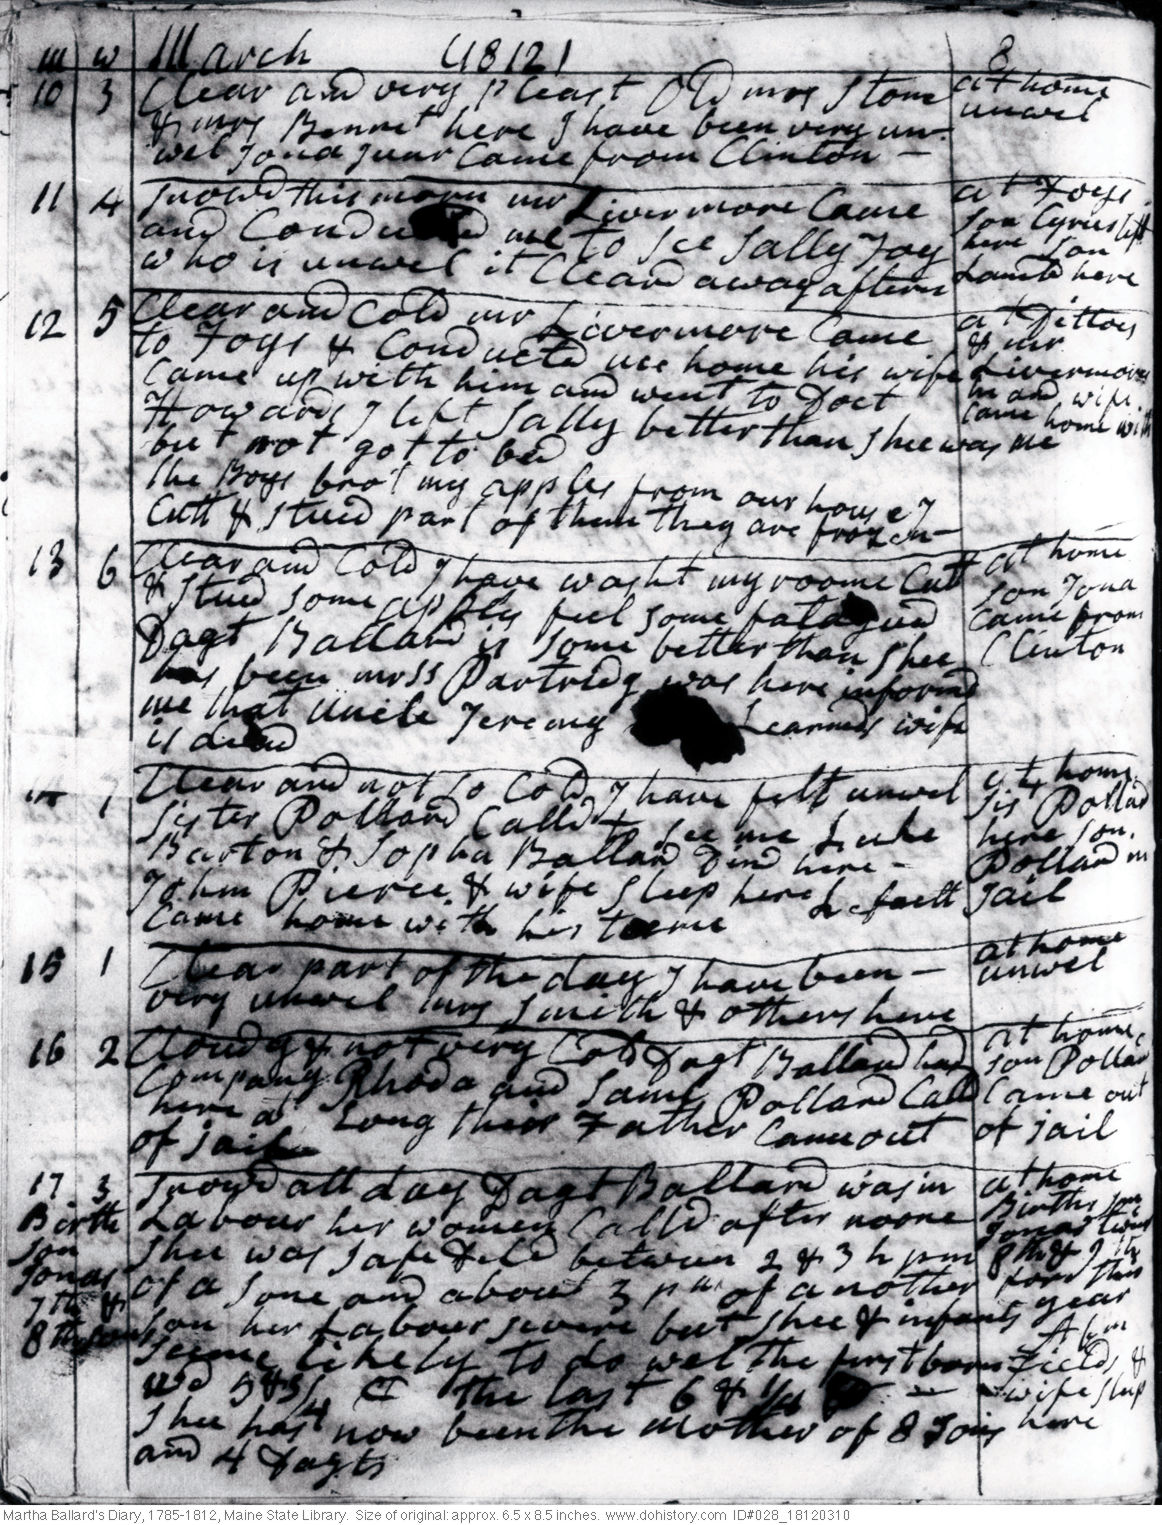 m w March 1812 8
10 3 Clear and very pleast Old mrs Stone at home
& mrs Bennet here I have been very un- unwel
wel Jona Junr Came from Clinton -
11 4 Snowd this morn mr Livermore Came at Foys
and Conducted me to see Sally Foy son Cyrus left
who is unwel it Cleard away aftern here son
Lambd here
12 5 Clear and Cold mr Livermore Came at Dittoes
to Foys & Conducted me home his wife & mr
Came up with him and went to Doct Livermore
Howards I left Sally better than Shee was and wife
but not got to bed Came home with me
the Boys brot my apples from our house I
Cutt & Stued part of them they are frozen -
13 6 Clear and Cold I have washt my roome Cutt at home
& Stued some apples feel some fatagued son Jona
Dagt Ballard is some better than Shee Came from
has been mrss Partridg was here informd Clinton
me that uncle Jeremy Learneds wife
is dead
14 7 Clear and not so Cold I have felt unwel at home
Sister Pollard Calld to see me Luke Sis Pollard
Barton & Sopha Ballard Dind here - here son
John Pierce & wife Sleep here Lafaett Pollard in
Came home with his teeme Jail
15 1 Clear part of the day I have been - at home
very unwel mrs Smith & others here unwel
16 2 Cloudy & not very Cold Dagt Ballard had at home
Company Rhoda and Same Pollard Calld son Pollard
here at Long their Father Came out Came out
of Jail of Jail
17 3 Snowd all day Dagt Ballard was in at home
Birth Labour her women Calld after noone Births son
son Shee was safe Deld between 2 & 3 h pm Jonas twins
Jonas of a Sone and about 3 pm of another 8th & 9th
7th & Son her Labour severe but Shee & infants for this year
8th sons seeme likely to do wel the first born
wd 5 & 3/4 the last 6 & 1/4 - Fields &
Shee has now been the mother of 8 Sons wife sleep
and 4 Dagts here
Martha Ballard's Diary, 1785-1812, Maine State Library. Size of original: approx. 6.5 x 8.5 inches. www.dohistory.com ID#028_18120310